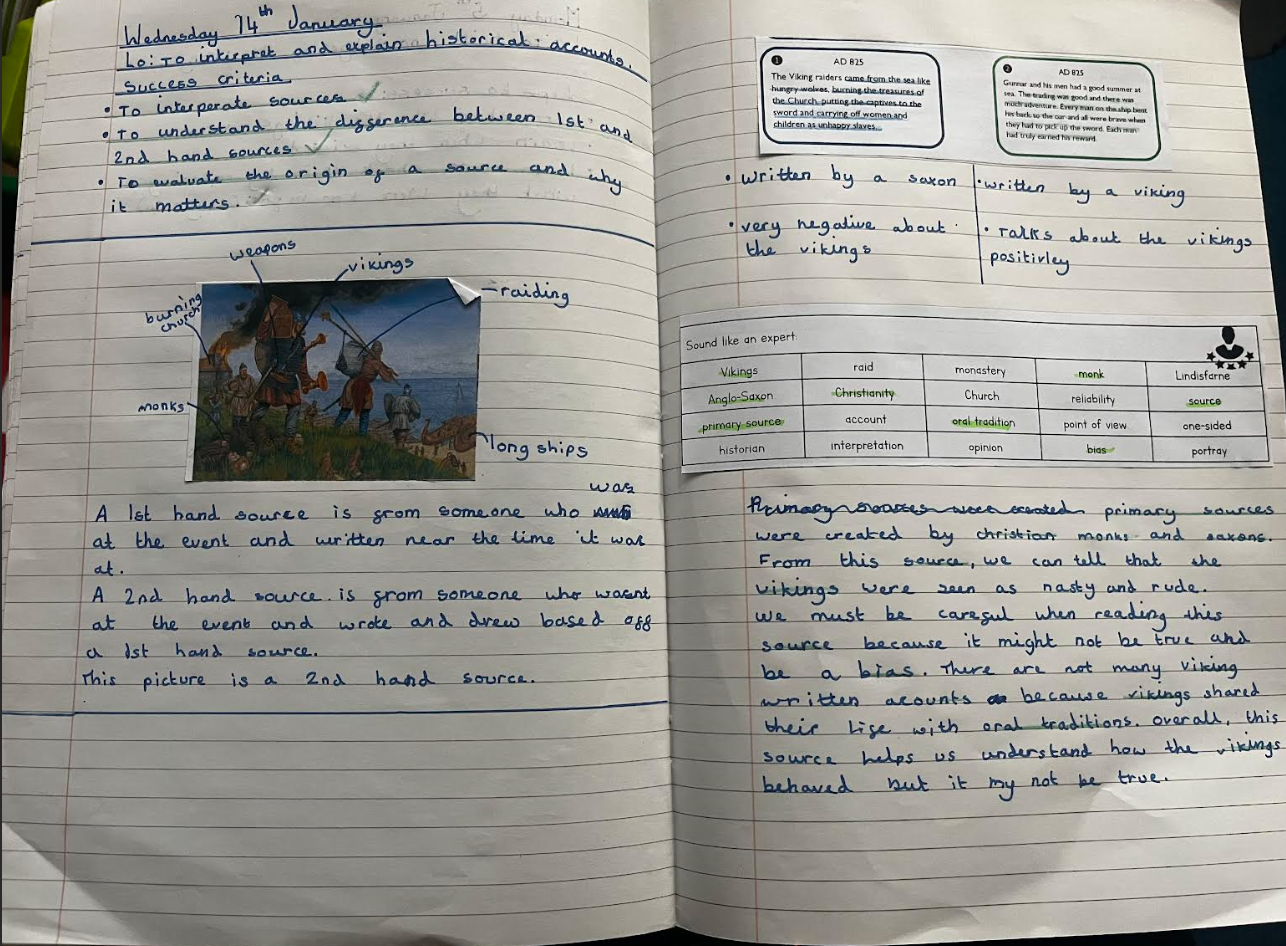 Wednesday 14th January
Lo: To interpret and explain historical accounts.
Success criteria
• To interperate sources ✓
• To understand the difference between 1st and
2nd hand sources ✓
• To evaluate the origin of a source and why
it matters.
weapons
vikings
raiding
burning
church
monks
long ships
was
A 1st hand source is from someone who
at the event and written near the time it was
at.
A 2nd hand source is from someone who wasnt
at the event and wrote and drew based off
a 1st hand source.
This picture is a 2nd hand source.
1 AD 825
The Viking raiders came from the sea like
hungry wolves, burning the treasures of
the Church, putting the captives to the
sword and carrying off women and
children as unhappy slaves.
2 AD 825
Gunnar and his men had a good summer at
sea. The trading was good and there was
much adventure. Every man on the ship bent
his back to the oar and all were brave when
they had to pick up the sword. Each man
had truly earned his reward.
• written by a saxon
• very negative about
the vikings
• written by a viking
• Talks about the vikings
positivley
Sound like an expert
Vikings raid monastery monk Lindisfarne
Anglo-Saxon Christianity Church reliability source
primary source account oral tradition point of view one-sided
historian interpretation opinion bias portray
Primary sources were created primary sources
were created by christian monks and saxons.
From this source, we can tell that the
vikings were seen as nasty and rude.
we must be careful when reading this
source because it might not be true and
be a bias. There are not many viking
written acounts because vikings shared
their life with oral traditions. overall, this
source helps us understand how the vikings
behaved but it my not be true.